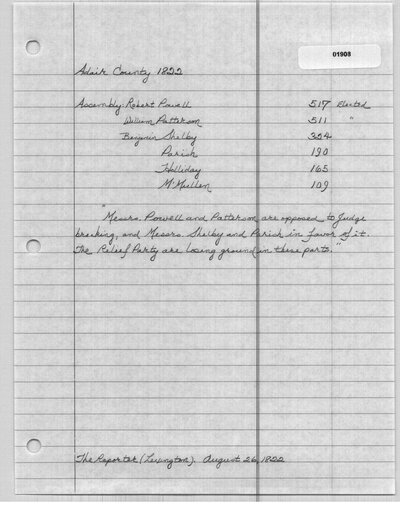 01908
Adair County 1822
Assembly: Robert Powell 517 Elected
William Patterson 511 "
Benjamin Shelby 324
Parish 190
Holliday 165
McMullen 109
"Messrs. Powell and Patterson are opposed to Judge
breaking, and Messrs. Shelby and Parish in favor of it.
The Relief Party are losing ground in these parts."
The Reporter (Lexington). August 26, 1822